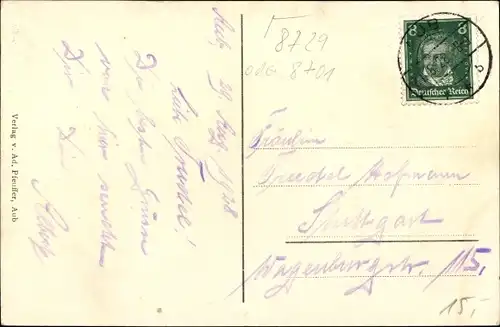 Aub, 29. Aug. 1928
Liebe Friedel!
von hier sendet
Dir Dein
Adolf
Verlag v. Ad. Pfeuffer, Aub
8729
8701
8 8
Deutsches Reich
Fräulein
Friedel Hofmann
Stuttgart
Wagenburgstr. 115.
15,-